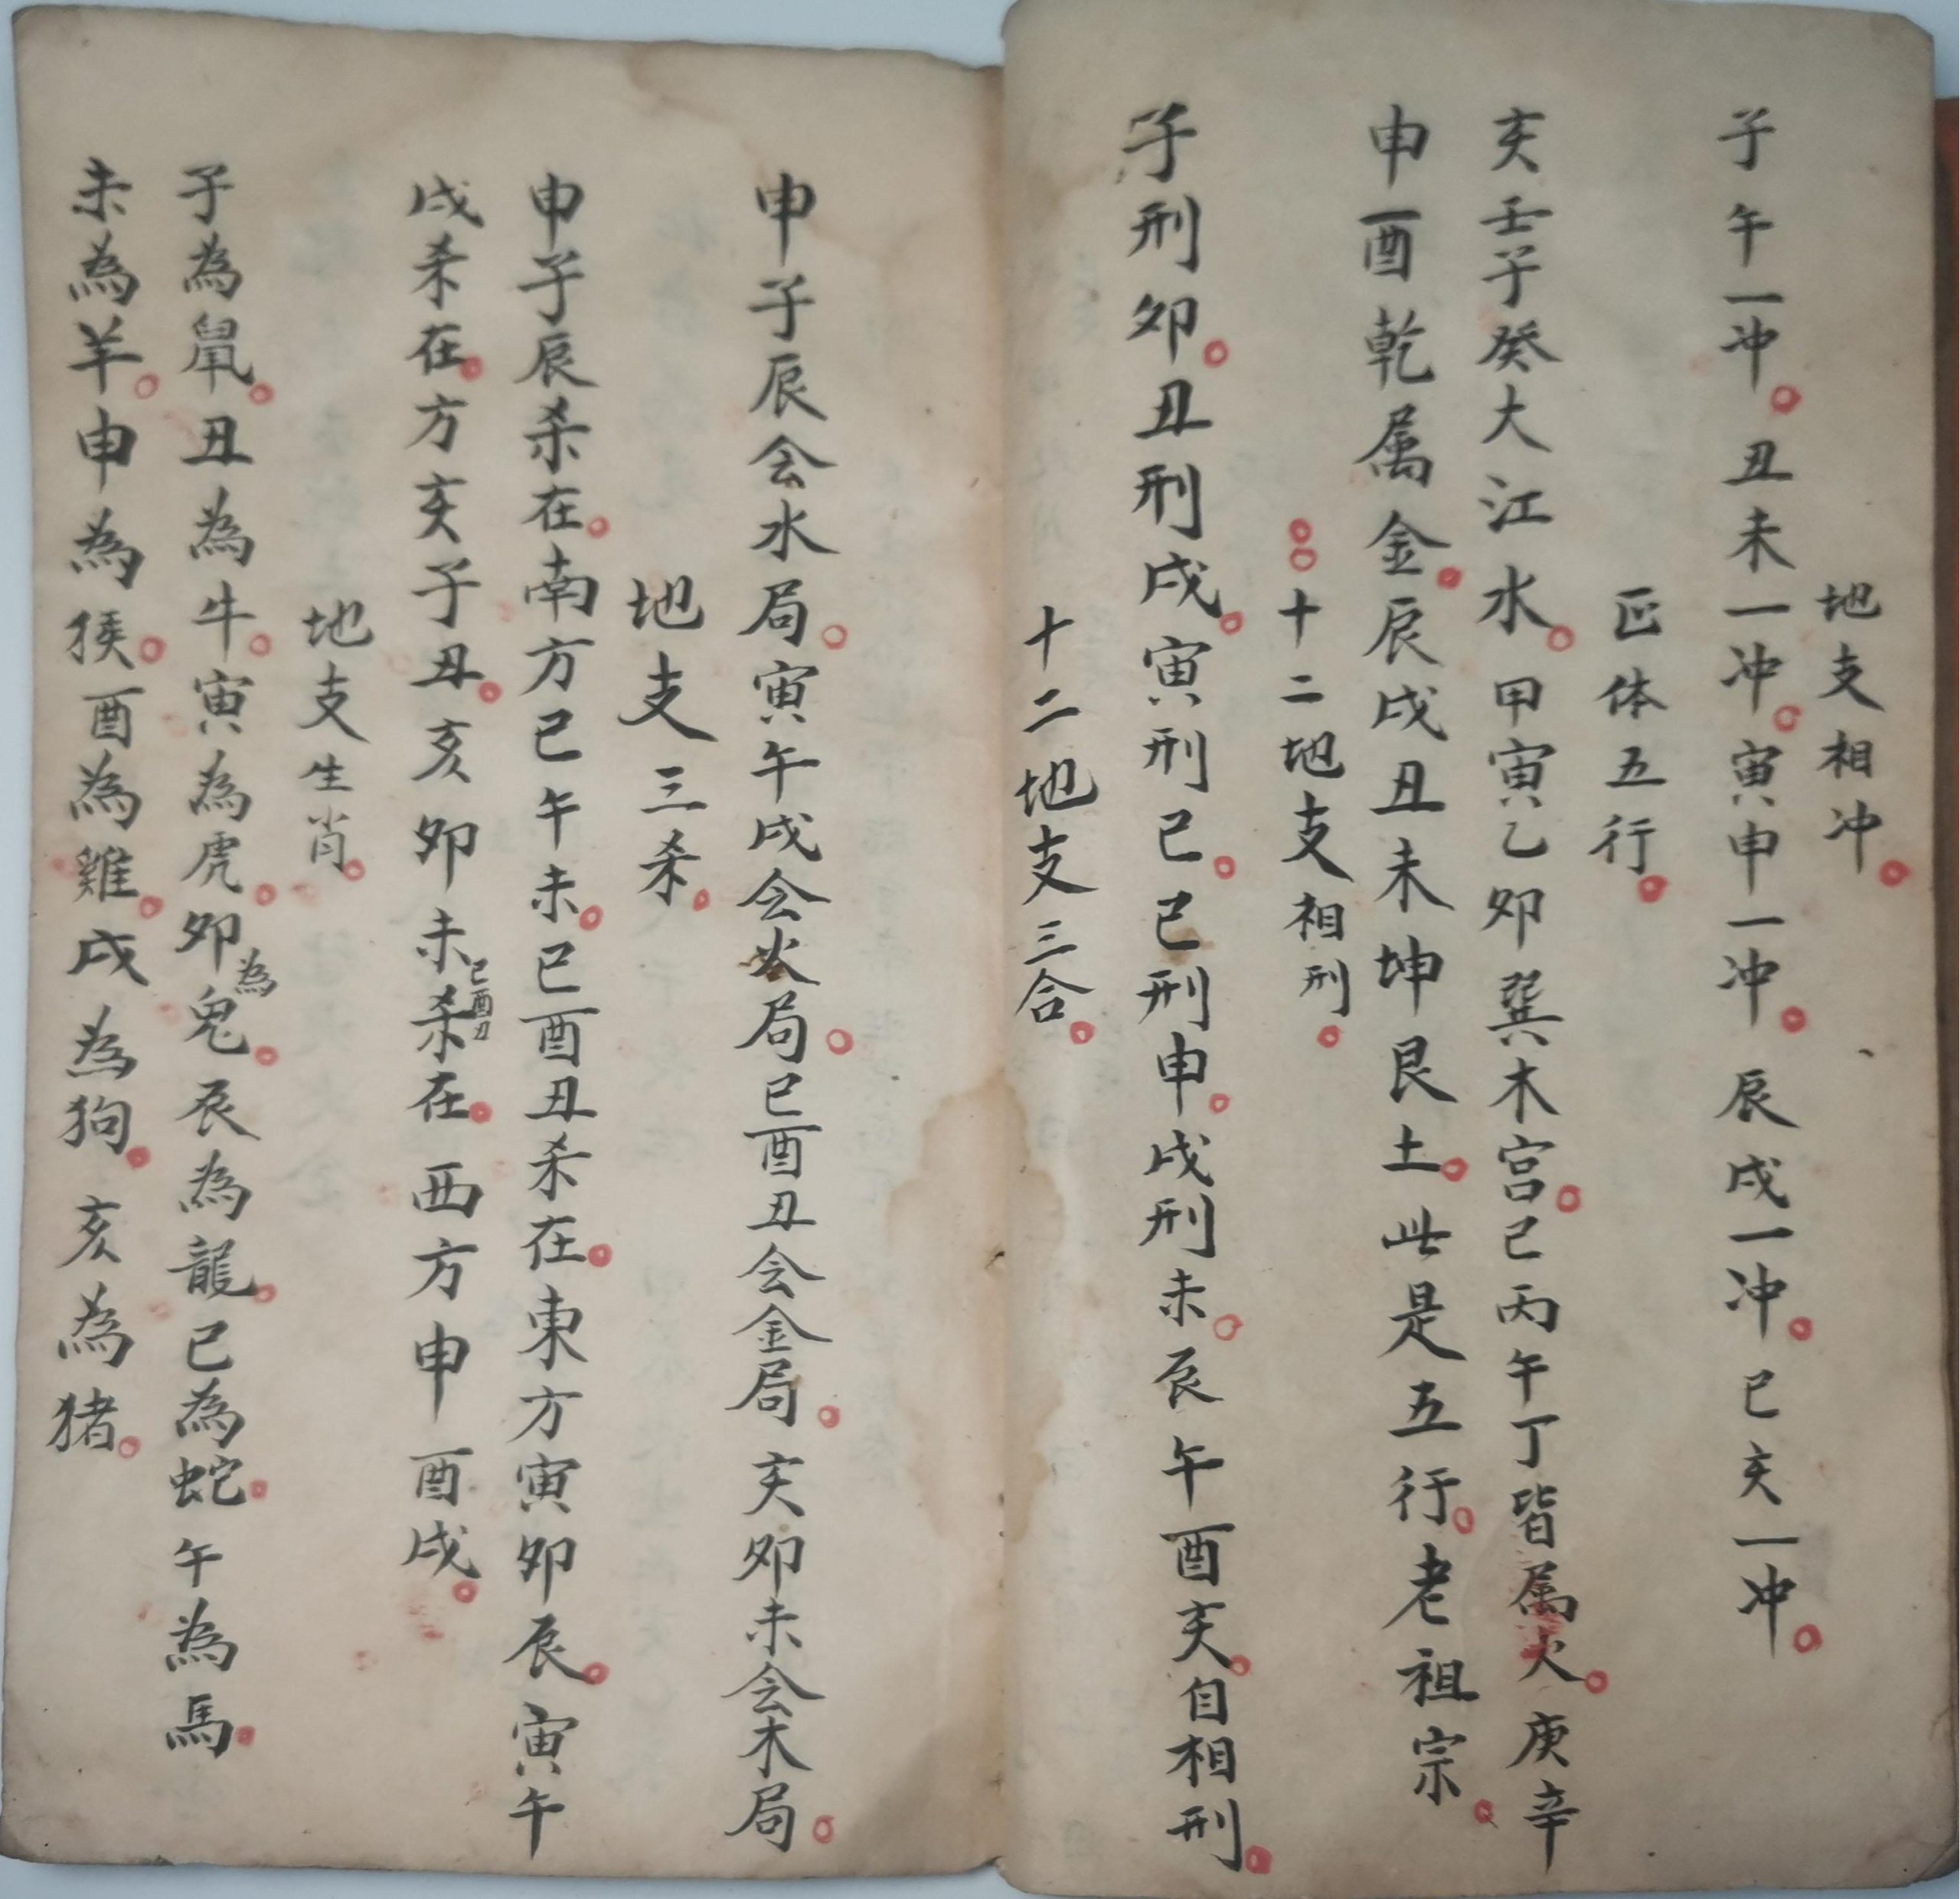 地支相冲
子午一冲。丑未一冲。寅申一冲。辰戌一冲。巳亥一冲。
正体五行。
亥壬子癸大江水。甲寅乙卯巽木宫。巳丙午丁皆属火。庚辛
申酉乾属金。辰戌丑未坤艮土。此是五行。老祖宗。
十二地支相刑。
子刑卯。丑刑戌。寅刑巳。巳刑申。戌刑未。辰午酉亥。自相刑。
十二地支三合。
申子辰会水局。寅午戌会火局。巳酉丑会金局。亥卯未会木局。
地支三杀。
申子辰杀在。南方巳午未。巳酉丑杀在。東方寅卯辰。寅午
戌杀在。方亥子丑。亥卯未杀在。西方申酉戌。
巳酉丑
地支生肖。
子為鼠。丑為牛。寅為虎。卯為兔。辰為龍。巳為蛇。午為馬。
未為羊。申為猴。酉為雞。戌為狗。亥為猪。